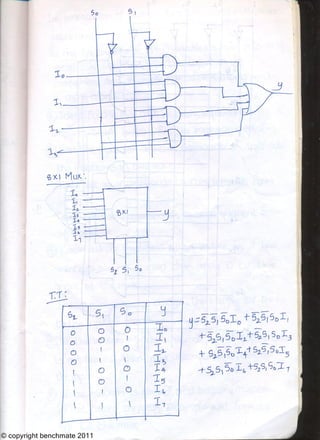 S₀ S₁
I₀
I₁
I₂
I₃
y
8X1 Mux:
I₀
I₁
I₂
I₃
I₄
I₅
I₆
I₇
8X1
y
S₂ S₁ S₀
T.T:
S₂ S₁ S₀ y
0 0 0 I₀
0 0 1 I₁
0 1 0 I₂
0 1 1 I₃
1 0 0 I₄
1 0 1 I₅
1 1 0 I₆
1 1 1 I₇
y = S̅₂S̅₁S̅₀I₀ + S̅₂S̅₁S₀I₁
+ S̅₂S₁S̅₀I₂ + S̅₂S₁S₀I₃
+ S₂S̅₁S̅₀I₄ + S₂S̅₁S₀I₅
+ S₂S₁S̅₀I₆ + S₂S₁S₀I₇
© copyright benchmate 2011